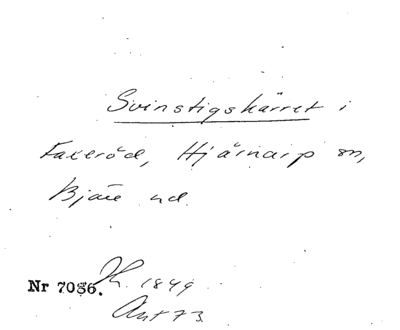 Svinstigskärret i
Faxeröd, Hjärnarp sn,
Bjäre hd.
Nr 7036. 1849
Ant 73